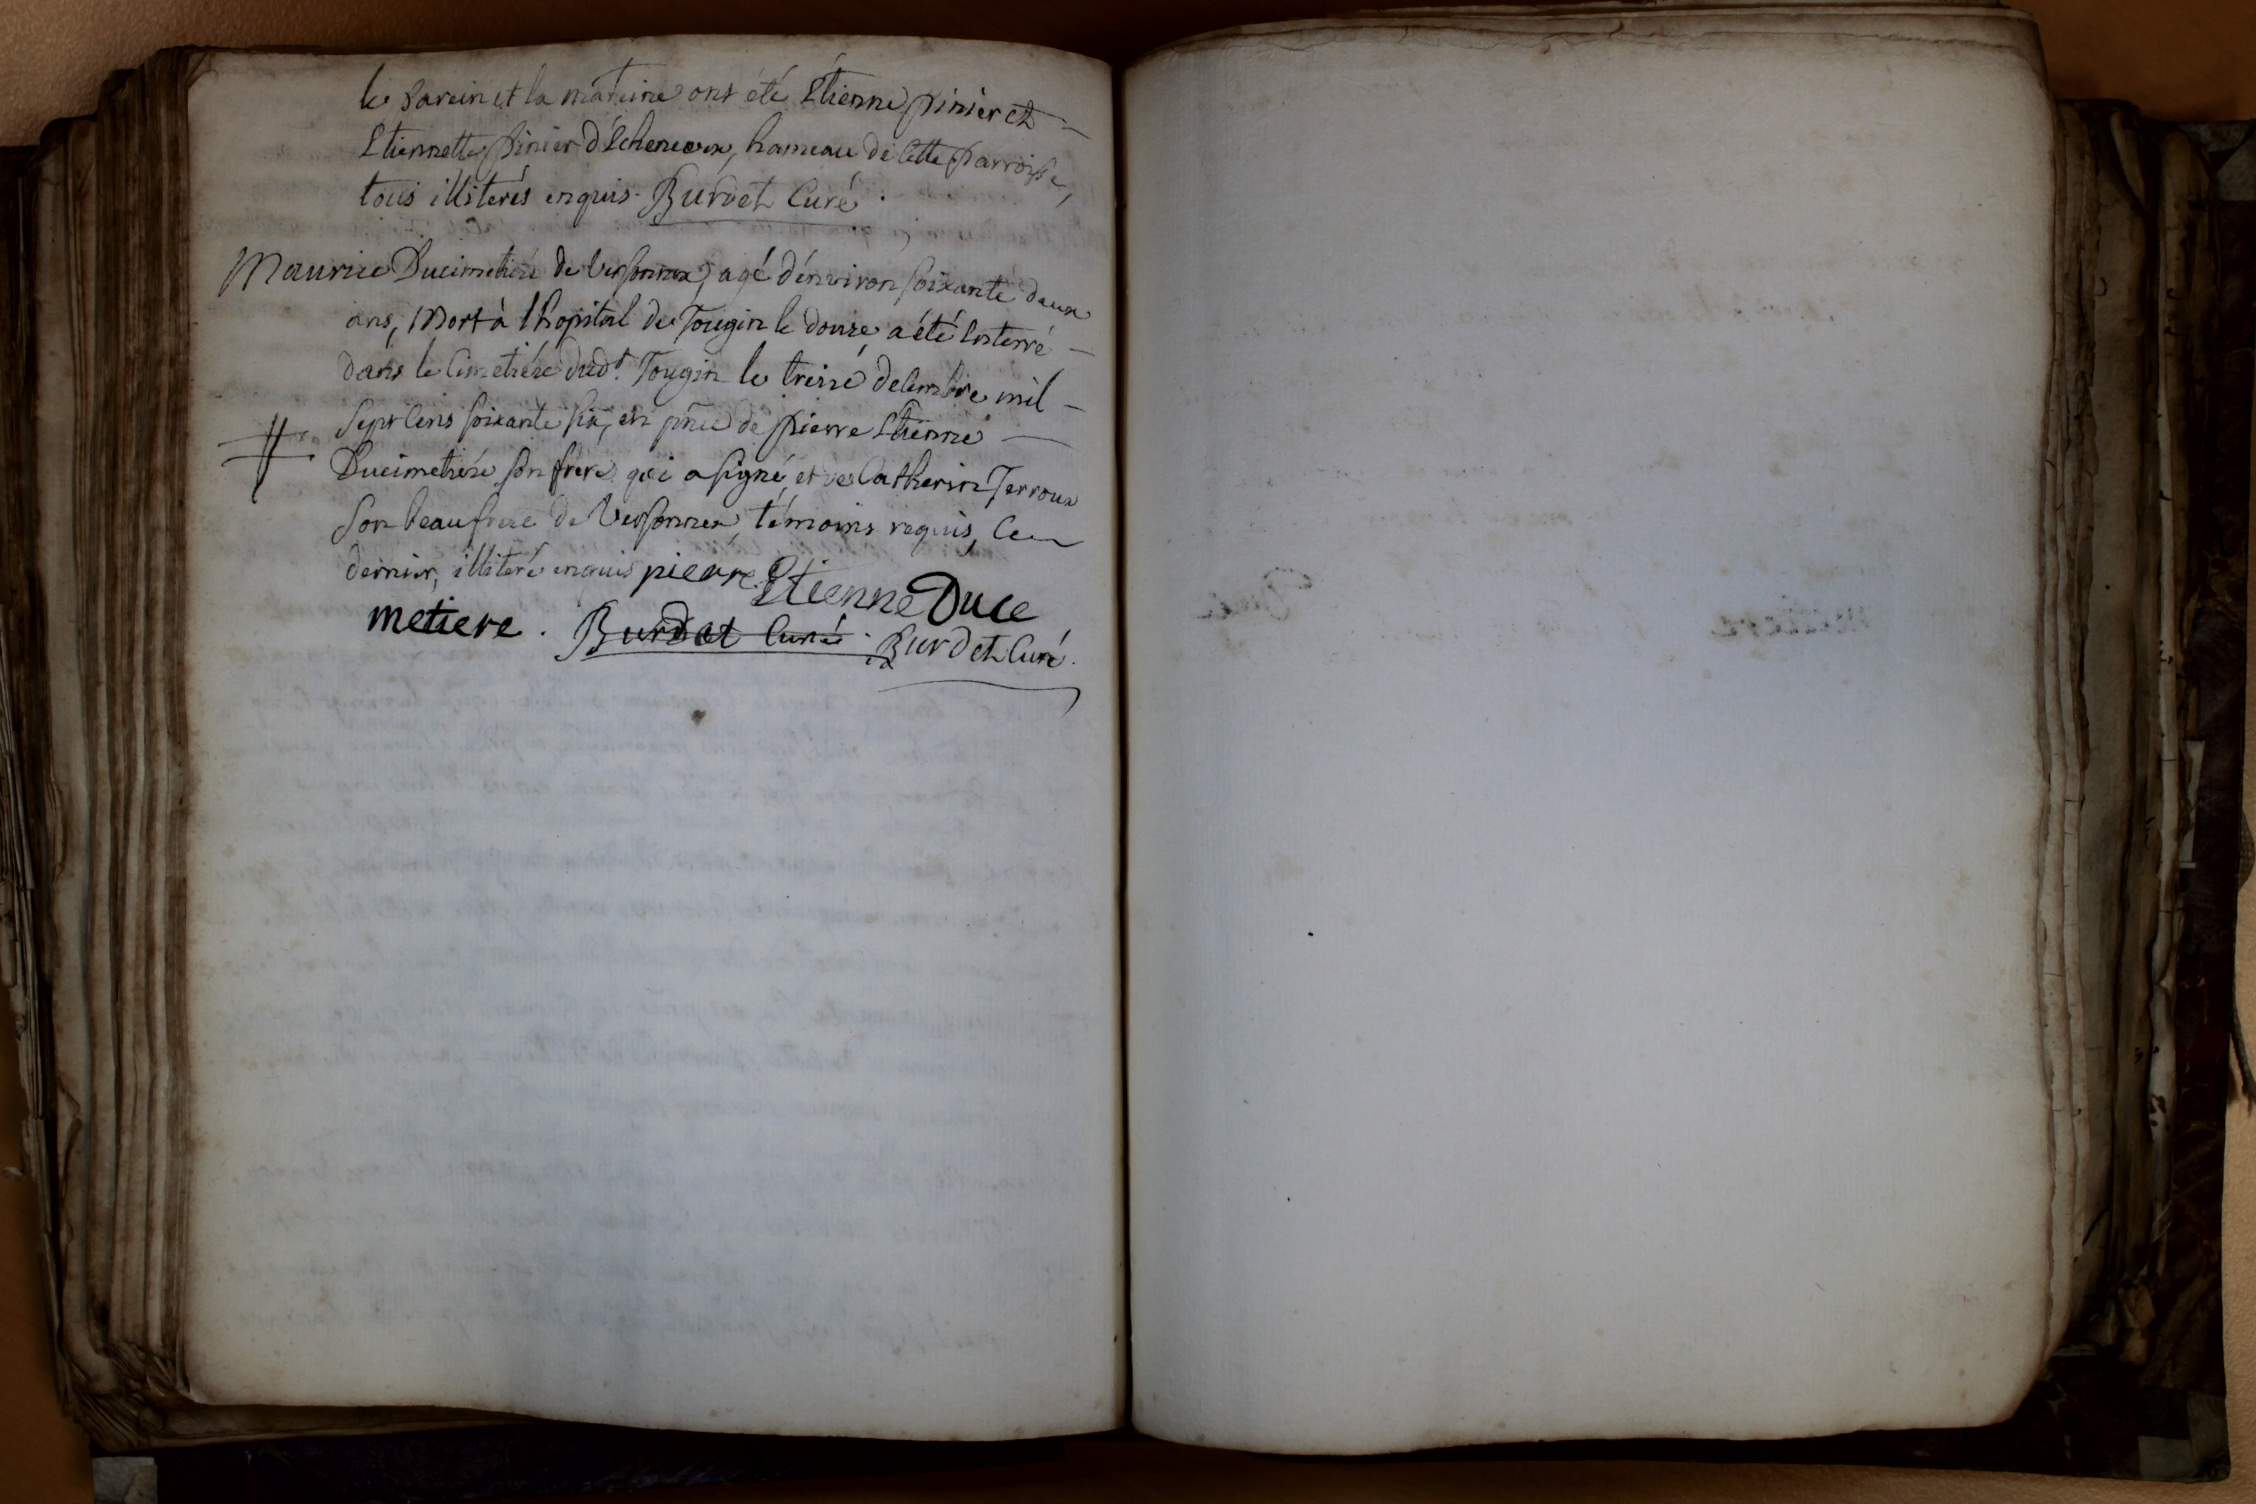 le parein et la mareine ont été Etienne pinier et
Etiennette pinier d'Echenevex, hameau de cette parroisse,
tous illiterés enquis. Burdet Curé.
Maurice Ducimetière de Versonnex, agé d'environ soixante deux
ans, Mort à l'hopital de Tougin le douze, a été Enterré
dans le Cimetière dud.t Tougin le treize decembre mil
sept cens soixante six, en pñce de pierre Etienne
Ducimetière son frère qui a signé, et de Catherin Terroux
son beaufrere de Versonnex, témoins requis, Ce
dernier, illiteré enquis pierre Etienne Duce
metiere. Burdet Curé. Burdet Curé.